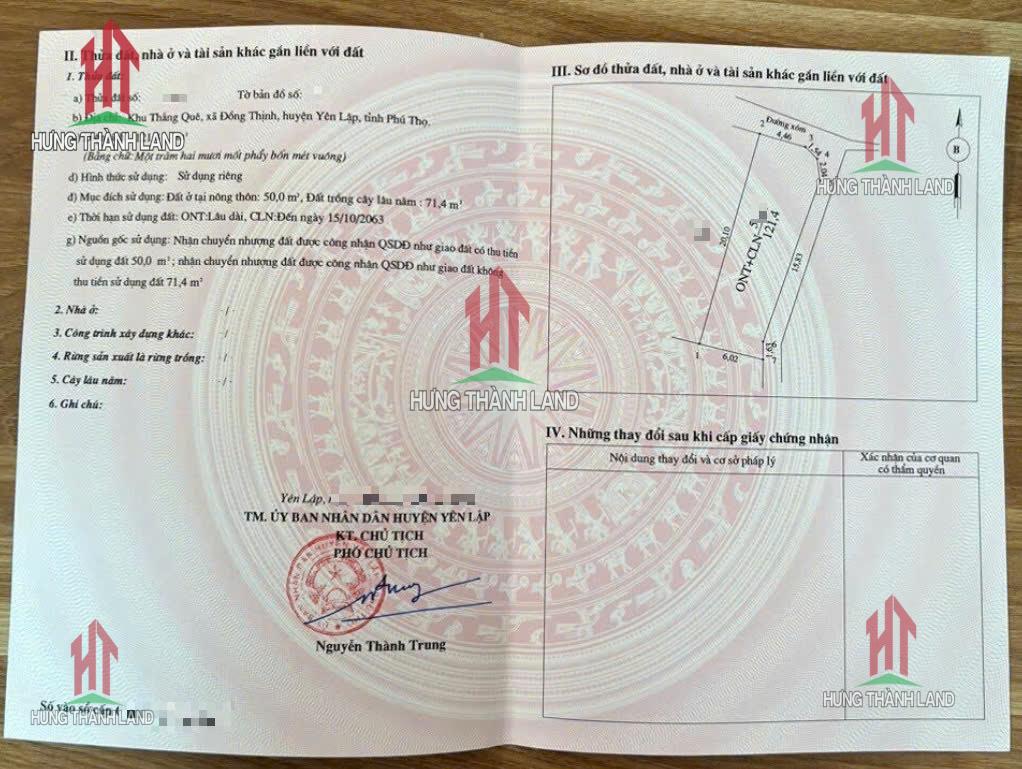 II. Thửa đất, nhà ở và tài sản khác gắn liền với đất
1. Thửa đất:
a) Thửa đất số:
Tờ bản đồ số:
b) Địa chỉ: Khu Tháng Quê, xã Đồng Thịnh, huyện Yên Lập, tỉnh Phú Thọ.
(Bằng chữ: Một trăm hai mươi mốt phẩy bốn mét vuông)
d) Hình thức sử dụng: Sử dụng riêng
đ) Mục đích sử dụng: Đất ở tại nông thôn: 50,0 m², Đất trồng cây lâu năm : 71,4 m²
e) Thời hạn sử dụng đất: ONT:Lâu dài, CLN:Đến ngày 15/10/2063
g) Nguồn gốc sử dụng: Nhận chuyển nhượng đất được công nhận QSDĐ như giao đất có thu tiền
sử dụng đất 50,0 m²; nhận chuyển nhượng đất được công nhận QSDĐ như giao đất không
thu tiền sử dụng đất 71,4 m²
2. Nhà ở: -/-
3. Công trình xây dựng khác: -/-
4. Rừng sản xuất là rừng trồng: -/-
5. Cây lâu năm: -/-
6. Ghi chú:
Yên Lập,
TM. ỦY BAN NHÂN DÂN HUYỆN YÊN LẬP
KT. CHỦ TỊCH
PHÓ CHỦ TỊCH
Nguyễn Thành Trung
Số vào sổ cấp
III. Sơ đồ thửa đất, nhà ở và tài sản khác gắn liền với đất
Đường xóm
2
4,46
3
1,54
4
2,04
B
20,10
ONT+CLN
121,4
15,83
1
6,02
1,63
6
7
IV. Những thay đổi sau khi cấp giấy chứng nhận
Nội dung thay đổi và cơ sở pháp lý
Xác nhận của cơ quan
có thẩm quyền
HƯNG THÀNH LAND
HƯNG THÀNH LAND
HƯNG THÀNH LAND
HƯNG THÀNH LAND
HƯNG THÀNH LAND